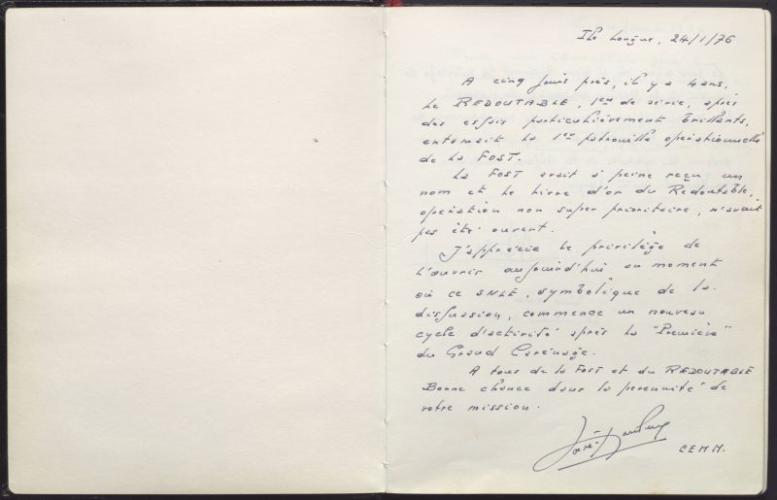 Ile Longue, 24/1/76
A cinq jours près, il y a 4 ans,
Le REDOUTABLE, 1er de série, après
des essais particulièrement brillants,
entamait la 1ere patrouille opérationnelle
de la FOST.
La FOST avait à peine reçu un
nom et le livre d'or du Redoutable,
opération non super prioritaire, n'avait
pas été ouvert.
J'apprécie le privilège de
l'ouvrir aujourd'hui au moment
où ce SNLE, symbolique de la
dissuasion, commence un nouveau
cycle d'activité après la "Première"
du Grand Carénage.
A tous de la FOST et du REDOUTABLE
Bonne chance dans la perennité de
votre mission.
CEMM.